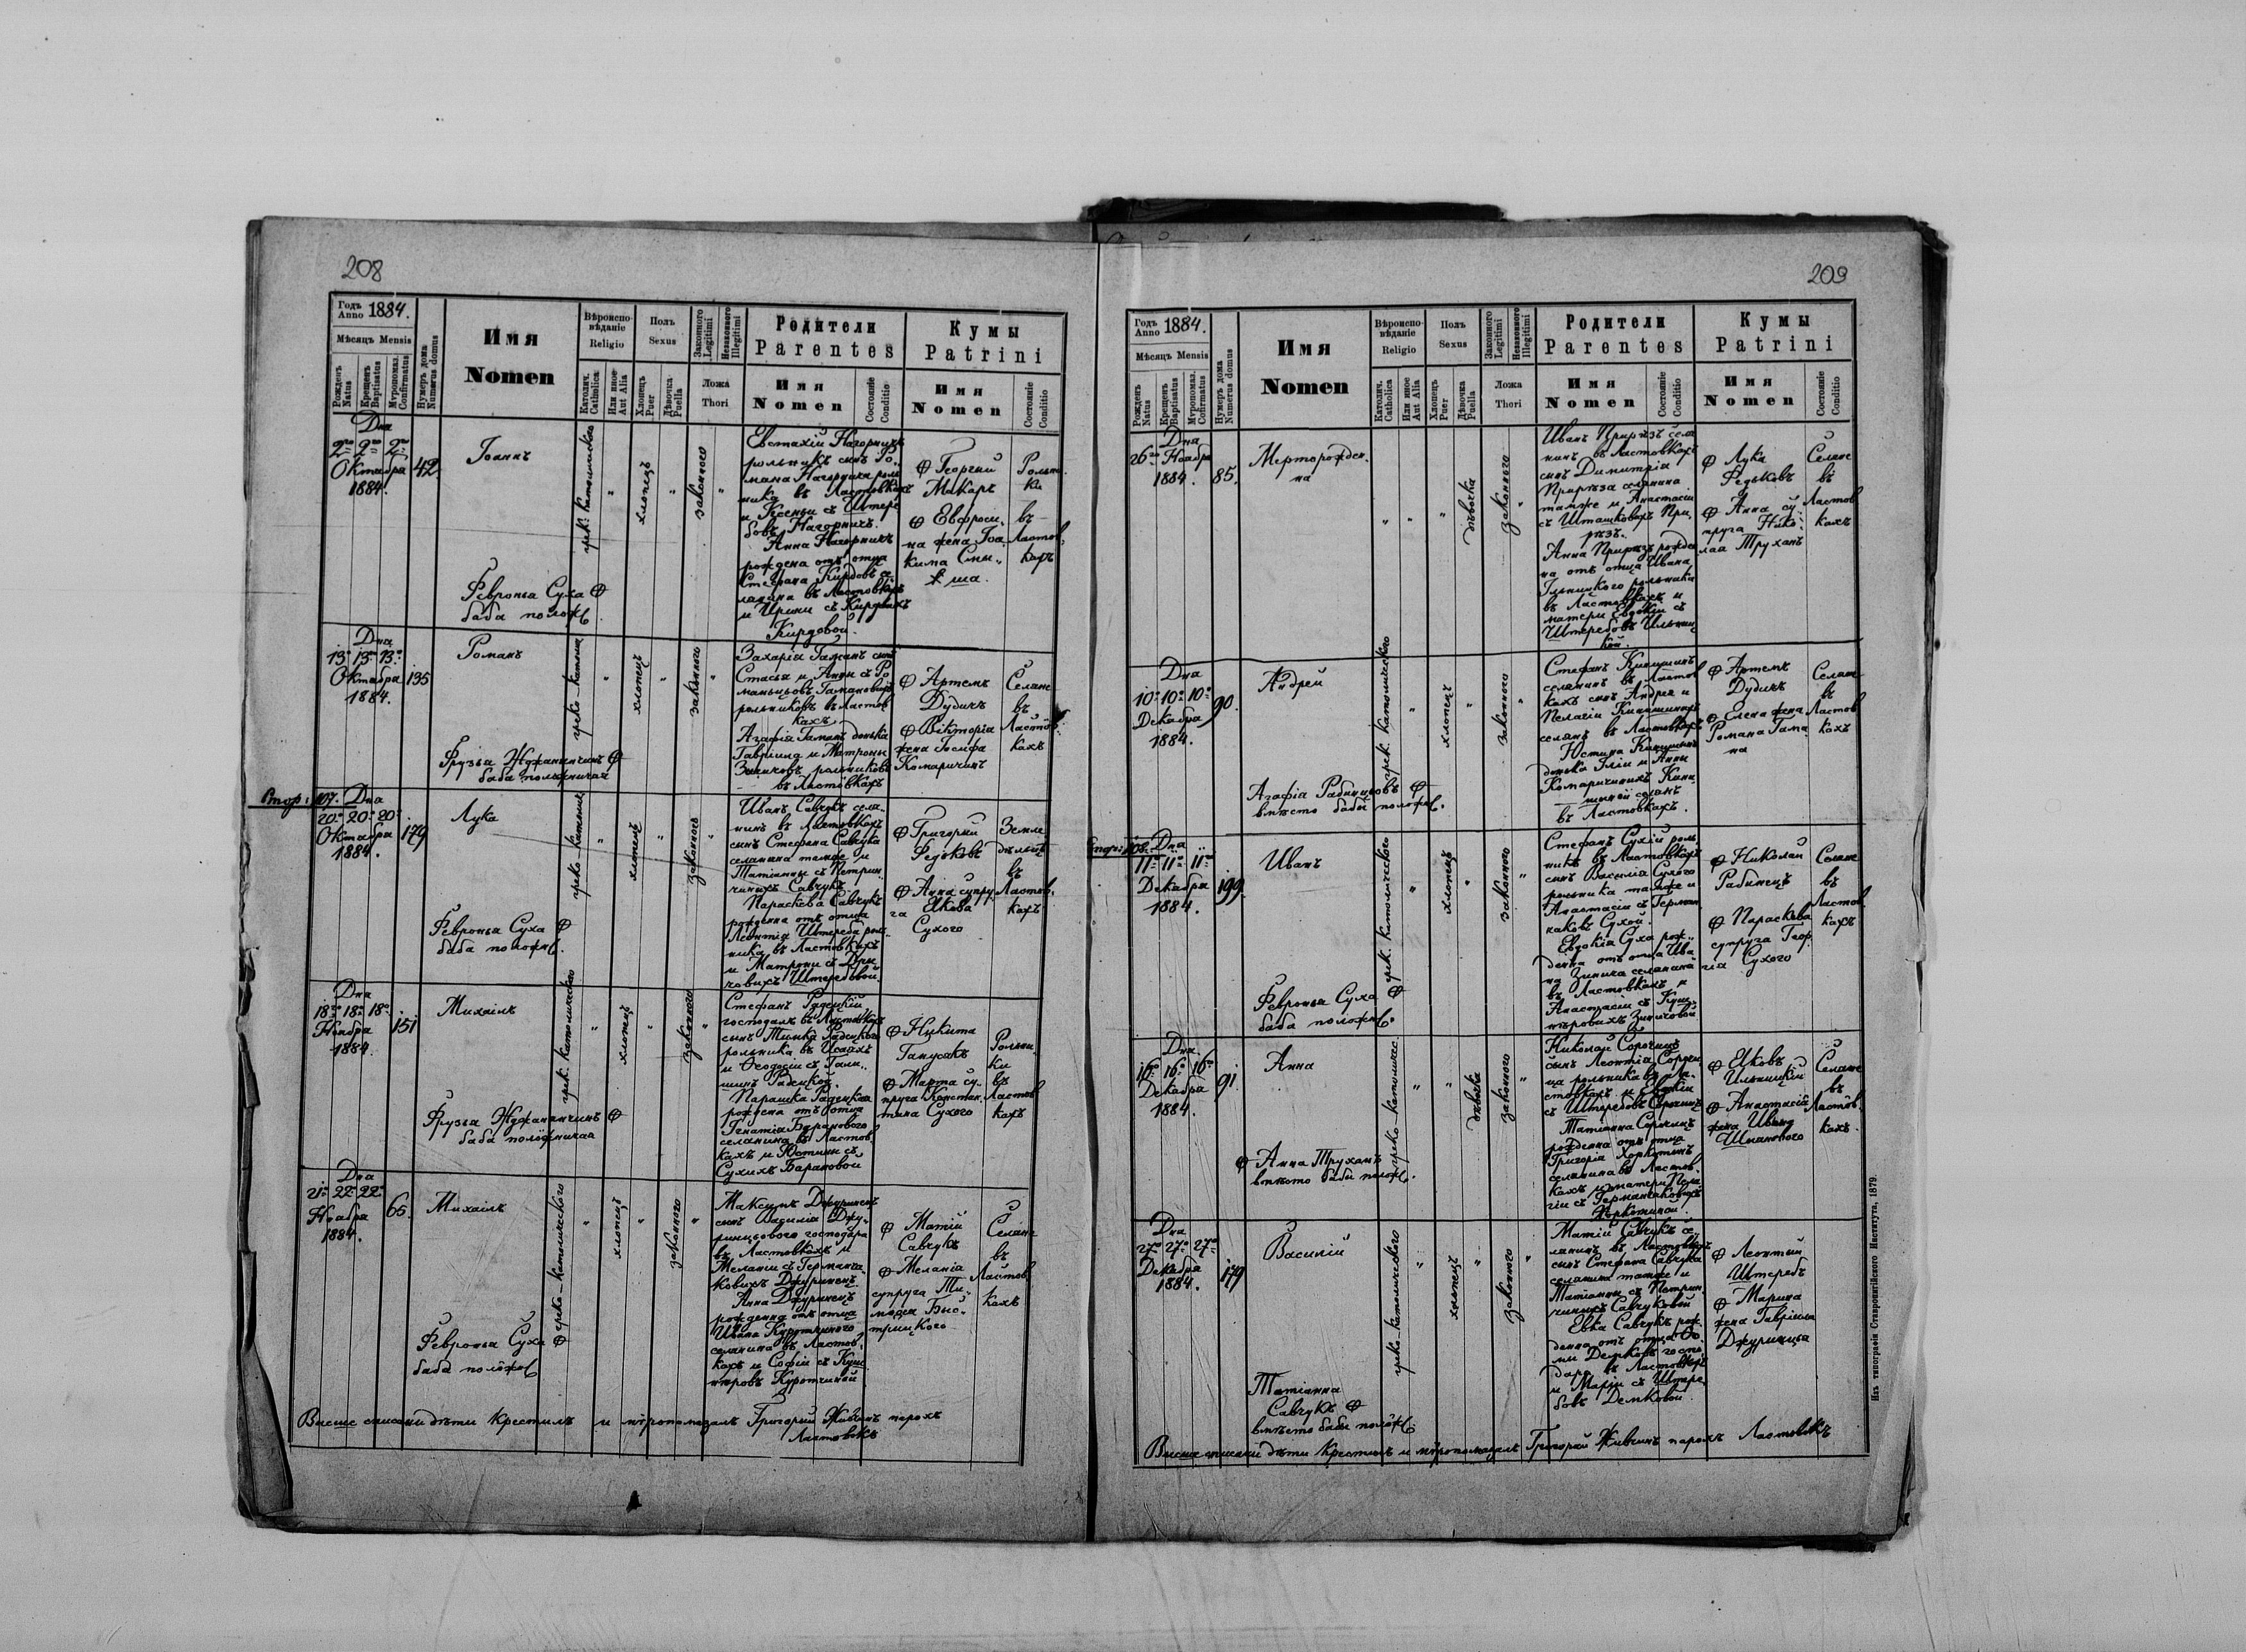 208
Годъ Anno 1884.
Мѣсяцъ Mensis
Рожденъ Natus
Крещенъ Baptisatus
Мѵропомаз. Confirmatus
Нумеръ дома Numerus domus
Имя
Nomen
Вѣроиспо-
вѣданіе
Religio
Католич. Catholica
Или иное Aut Alia
Полъ
Sexus
Хлопецъ Puer
Дѣвочка Puella
Законного Legitimi
Незаконного Illegitimi
Ложа
Thori
Родители
Parentes
Имя
Nomen
Состояніе Conditio
Кумы
Patrini
Имя
Nomen
Состояніе Conditio
Дна
2го 2го 2го
Октабра 42.
1884.
Іоаннъ
Февронья Суха
баба полож.
грек. католического
хлопецъ
законного
Евстахій Нагорнихъ
рольникъ сынъ Ро
мана Нагорнихъ роль
ника въ Ластовкахъ
и Ксеньи съ Штере
бовъ Нагорнихъ.
Анна Нагорнихъ
рождена отъ отца
Стефана Кирдовъ се
лянина въ Ластовкахъ
и Ирини съ
Кирдовой.
Георгій
Макаръ
Евфроси
на жена Іоа
кима Сны
ша.
Рольни
ки
въ
Ластов
кахъ
Дна
13го 13го 13го
Октабра 135
1884.
Романъ
Фрузья Жджанянчинъ
баба положничая
греко-католич
хлопецъ
законного
Захарія Гаманъ сынъ
Стасья и Анни съ Ро
маньцовъ Гамановихъ
рольниковъ въ Ластов
кахъ.
Агафія Гаманъ донька
Гавріила и Матроны
Зиничовъ рольниковъ
въ Ластовкахъ
Артемъ
Дудичъ
Вікторія
жена Іосифа
Комаричинъ
Селяне
въ
Ластов
кахъ
Втор: 107. Дна
20го 20го 20го
Октабра 179
1884.
Лука
Февронья Суха
баба полож.
греко-католич
хлопецъ
законного
Иванъ Савчукъ селя
нинъ въ Ластовкахъ
сынъ Стефана Савчука
селянина тамже и
Татіанны съ Петрин
чиныхъ Савчукъ
Параскева Савчукъ
рождена отъ отца
Леонтія Штереба роль
ника въ Ластовкахъ
и Матрони съ
Штеребовой.
Григорій
Федоковъ
Анна супру
га Якова
Сухого
Земле
дѣльцѣ
въ
Ластов
кахъ
Дна
18го 18го 18го
Ноабра 151
1884
Михаилъ
Фрузья Жджанянчинъ
баба положничая
грек. католического
хлопецъ
законного
Стефанъ Радецкій
господаръ въ Ластовкахъ
сынъ Тимка Радецкого
рольника въ Исаяхъ
и Феодосіи съ Гали
шинъ Радецкой.
Парашка Радецкая
рождена отъ отца
Игнатія Баранового
селянина въ Ластов
кахъ и Юстини съ
Сухихъ Барановой
Никита
Ганусякъ
Марта су
пруга Констан
тина Сухого
Рольни
ки
въ
Ластов
кахъ
Дна
21го 22го 22го
Ноабра 65.
1884.
Михаилъ
Февронья Суха
баба полож.
греко-католического
хлопецъ
законного
Максимъ Джуринецъ
сынъ Василія Джу
ринцового господара
въ Ластовкахъ и
Меланіи съ Германча
ковихъ Джуринецъ.
Анна Джуринецъ
рожденна отъ отца
Ивана Куротчиного
селянина въ Ластов
кахъ и Софіи съ Куш
нѣровъ Куротчиной
Матій
Савчукъ
Меланія
супруга Ти
моѳея Быс
трицкого
Селяне
въ
Ластов
кахъ
Висше списани дѣти крестилъ и мѵропомазалъ Григорій Живчинъ парохъ
Ластовокъ
209
Годъ Anno 1884.
Мѣсяцъ Mensis
Рожденъ Natus
Крещенъ Baptisatus
Мѵропомаз. Confirmatus
Нумеръ дома Numerus domus
Имя
Nomen
Вѣроиспо-
вѣданіе
Religio
Католич. Catholica
Или иное Aut Alia
Полъ
Sexus
Хлопецъ Puer
Дѣвочка Puella
Законного Legitimi
Незаконного Illegitimi
Ложа
Thori
Родители
Parentes
Имя
Nomen
Состояніе Conditio
Кумы
Patrini
Имя
Nomen
Состояніе Conditio
Дна
26го Ноабра
1884. 85.
Мерторожден
на
дѣвочка
законного
Иванъ Прирѣзъ селя
нинъ въ Ластовкахъ
сынъ Димитрія
Прирѣза селянина
тамже и Анастасіи
съ Шташковихъ При
рѣзъ.
Анна Прирѣзъ рожде
на отъ отца Ивана
Ільницкого рольника
въ Ластовкахъ и
матери Евдокіи съ
Штеребовъ Ильниц
кой.
Лука
Федьковъ
Анна су
пруга Нико
лая Труханъ
Селяне
въ
Ластов
кахъ
Дна
10го 10го 10го
Декабра 90.
1884.
Андрей
Агафія Рабинцовъ
вмѣсто бабы полож.
грек. католического
хлопецъ
законного
Стефанъ Кинишинъ
селянинъ въ Ластов
кахъ сынъ Андрея и
Пелагіи Кинишиныхъ
селянъ въ Ластовкахъ
Юстина Кинишинъ
донька Іліи и Анны
Комаричиныхъ Кини
шиней селянъ
въ Ластовкахъ.
Артемъ
Дудичъ
Елена жена
Романа Гама
на
Селяне
въ
Ластов
кахъ
Втор: 108. Дна
11го 11го 11го
Декабра 199
1884.
Иванъ
Февронья Суха
баба полож.
грек. католического
хлопецъ
законного
Стефанъ Сухій роль
никъ въ Ластовкахъ
сынъ Василія Сухого
рольника тамже и
Анастасіи съ Герман
чаковъ Сухой.
Евдокія Суха рож
денна отъ отца Ива
на Зинича селянина
въ Ластовкахъ и
Анастасіи съ Куш
нѣровихъ Зиничовой
Николай
Рабинецъ
Параскева
супруга Геор
гія Сухого
Селяне
въ
Ластов
кахъ
Дна
16го 16го 16го
Декабра 91.
1884.
Анна
Анна Труханъ
вмѣсто бабы полож.
греко-католичес.
дѣвочка
законного
Николай Сорочицъ
сынъ Леонтія Сорочи
ца рольника въ Ла
стовкахъ и Евдокіи
съ Штеребовъ Сорочицъ
Татіанна Сорочицъ
рожденна отъ отца
Григорія Хоркотинъ
селянина въ Ластов
кахъ и матери Пела
гіи съ Германчаковихъ
Хоркотиной
Яковъ
Ильницкій
Анастасія
жена Ивана
Шпанового
Селяне
въ
Ластов
кахъ
Дна
27го 27го 27го
Декабра 179
1884.
Василій
Татіанна
Савчукъ
вмѣсто бабы полож.
греко-католического
хлопецъ
законного
Матій Савчукъ се
лянинъ въ Ластовкахъ
сынъ Стефана Савчука
селянина тамже и
Татіанны съ Петрин
чиныхъ Савчуковой
Евка Савчукъ рож
денна отъ отца Ѳо
мы Демковъ госпо
дара въ Ластовкахъ
и Маріи съ Штере
бовъ Демковой.
Леонтій
Штеребъ
Марина
жена Гавріила
Джуринца
Висше писани дѣти крестилъ и мѵропомазалъ Григорій Живчинъ парохъ Ластовокъ
Изъ типографіи Ставропигійского Института, 1879.